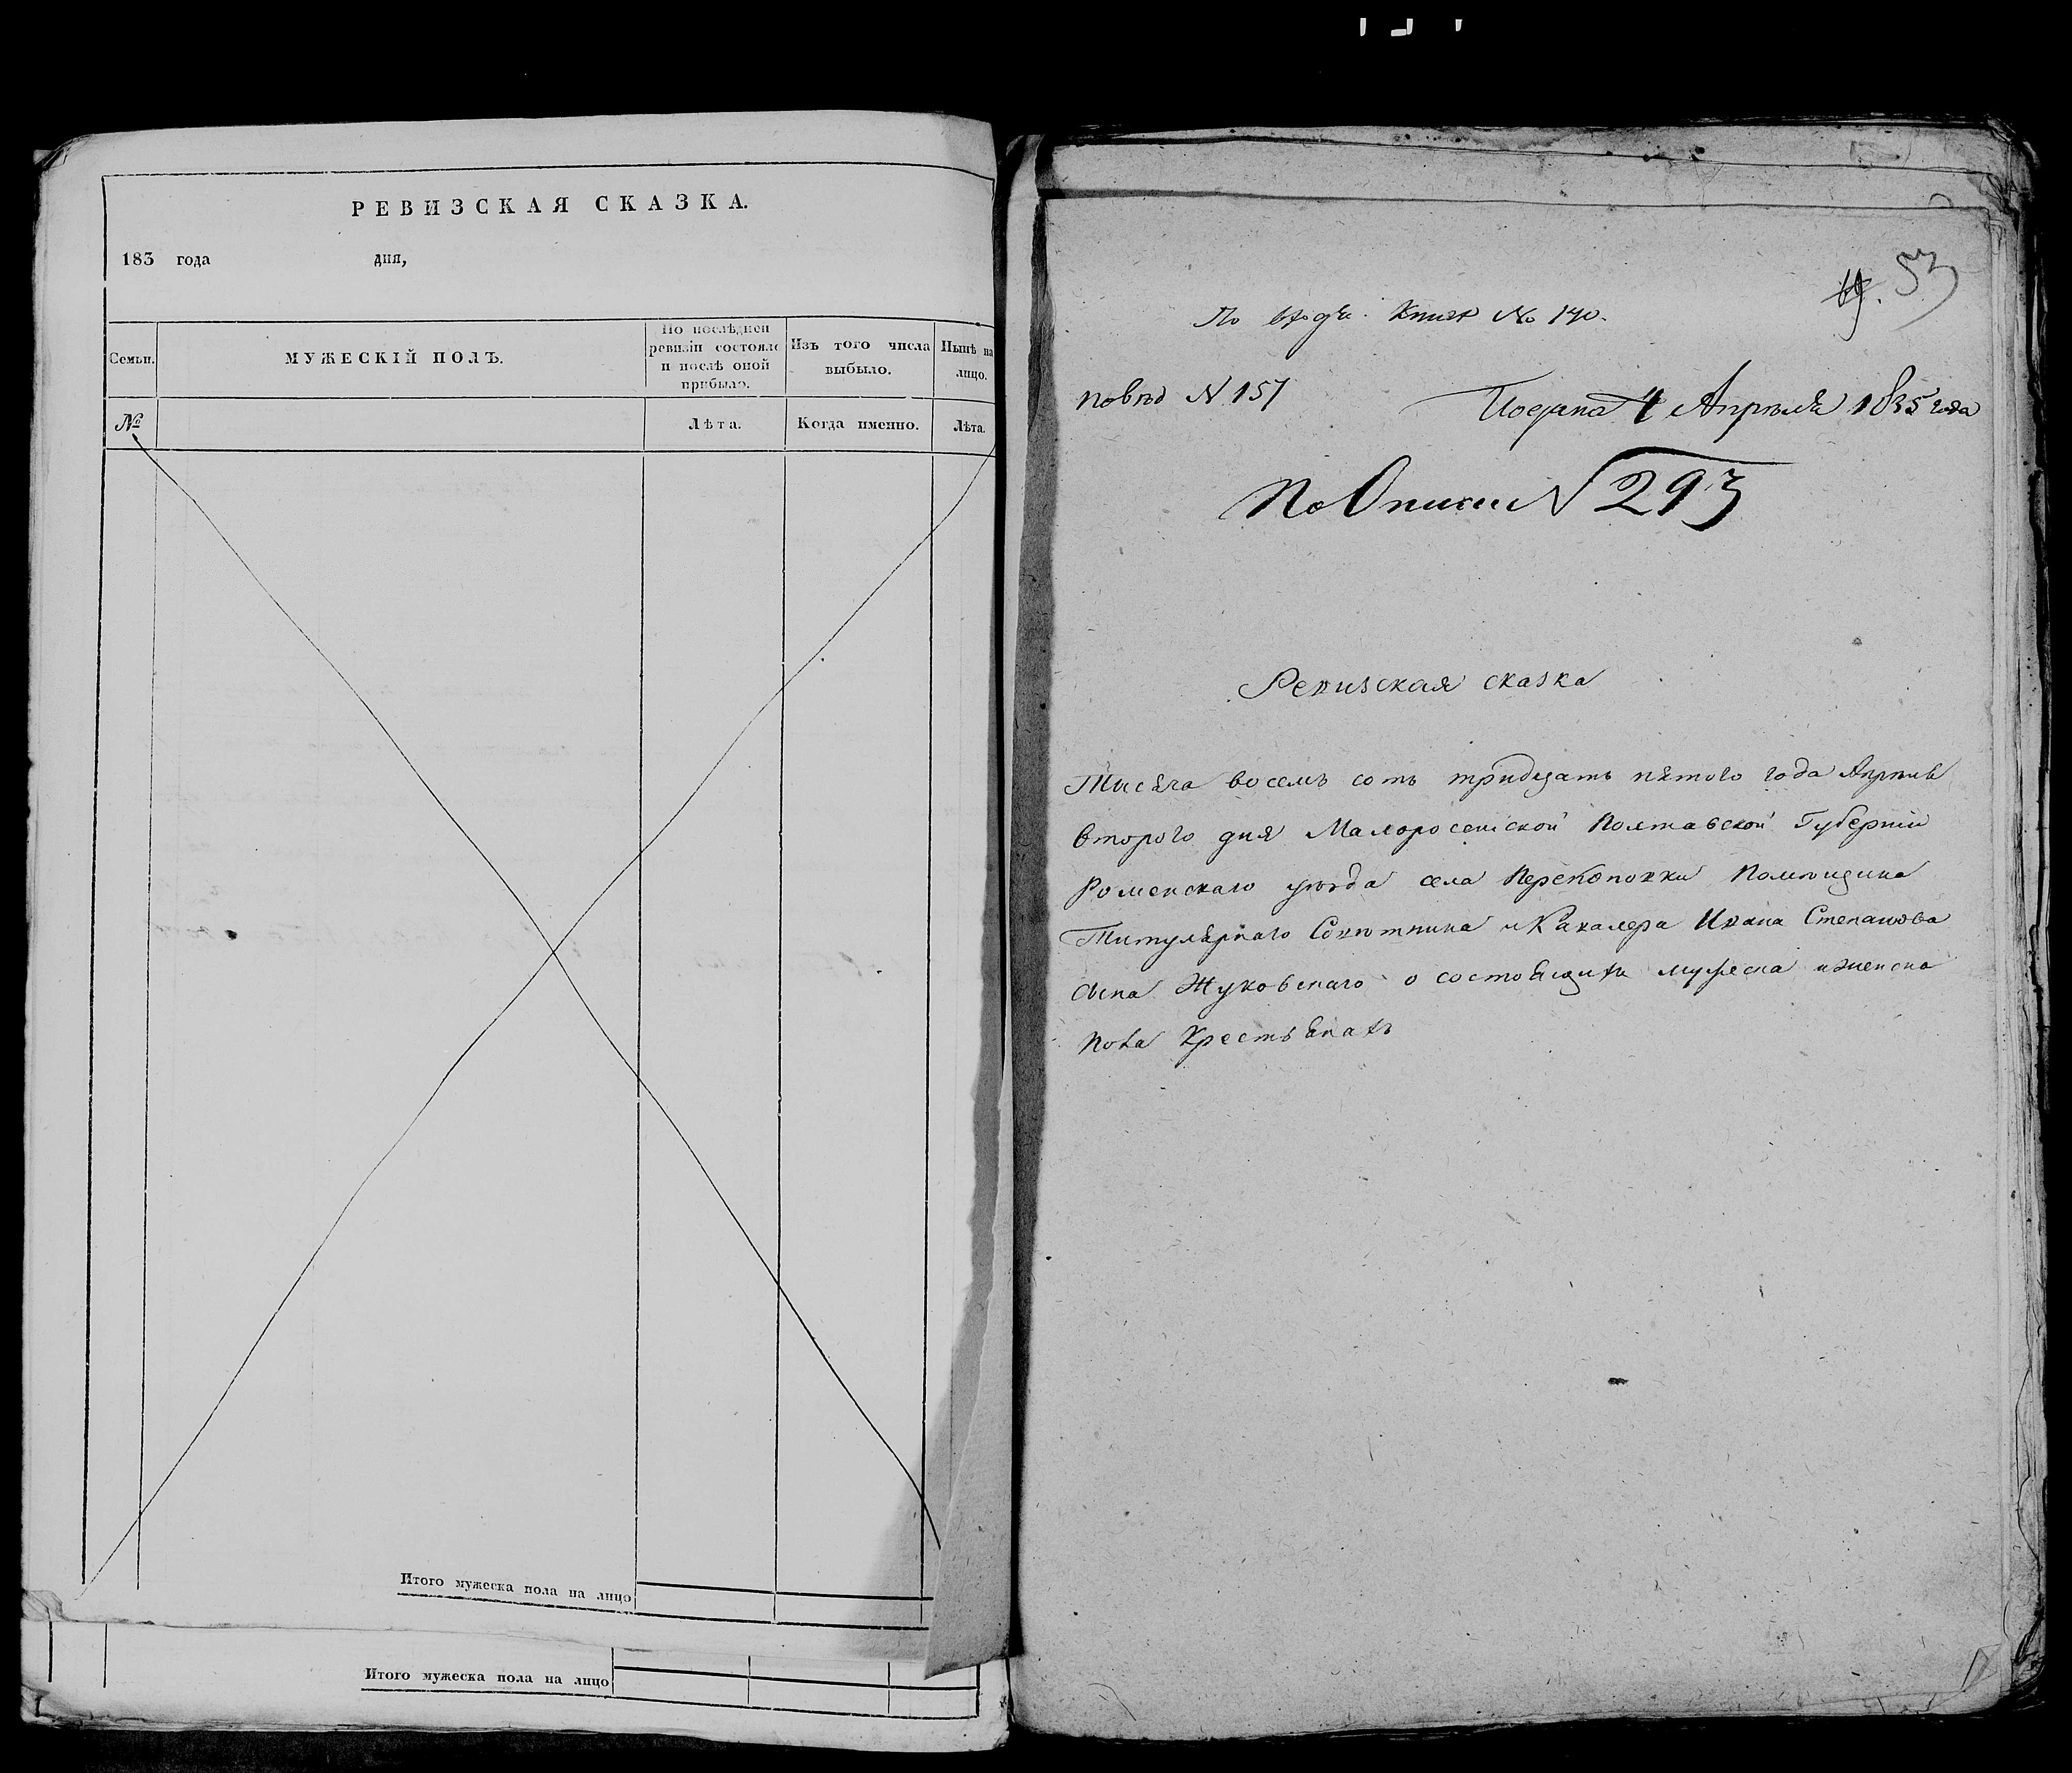 РЕВИЗСКАЯ СКАЗКА.
183 года дня,
Семьи.
МУЖЕСКІЙ ПОЛЪ.
По послѣдней
ревизіи состояло
и послѣ оной
прибыло.
Изъ того числа
выбыло.
Нынѣ на
лицо.
№
Лѣта.
Когда именно.
Лѣта.
Итого мужеска пола на лицо
Итого мужеска пола на лицо
53
По входя. Книгѣ № 140.
по вѣд N 157
Подана 4 Апрѣля 1835 года
По Описи N 293
Ревизская сказка
Тысяча восемъ сотъ тридцать пятого года Апрѣля
второго дня Малоросейской Полтавской Губерніи
Роменскаго уѣзда села Перекоповки Помѣщика
Титулярнаго Совѣтника и Кавалера Ивана Степанова
сына Жуковскаго о состоящихъ мужеска и женска
пола Крестьянахъ